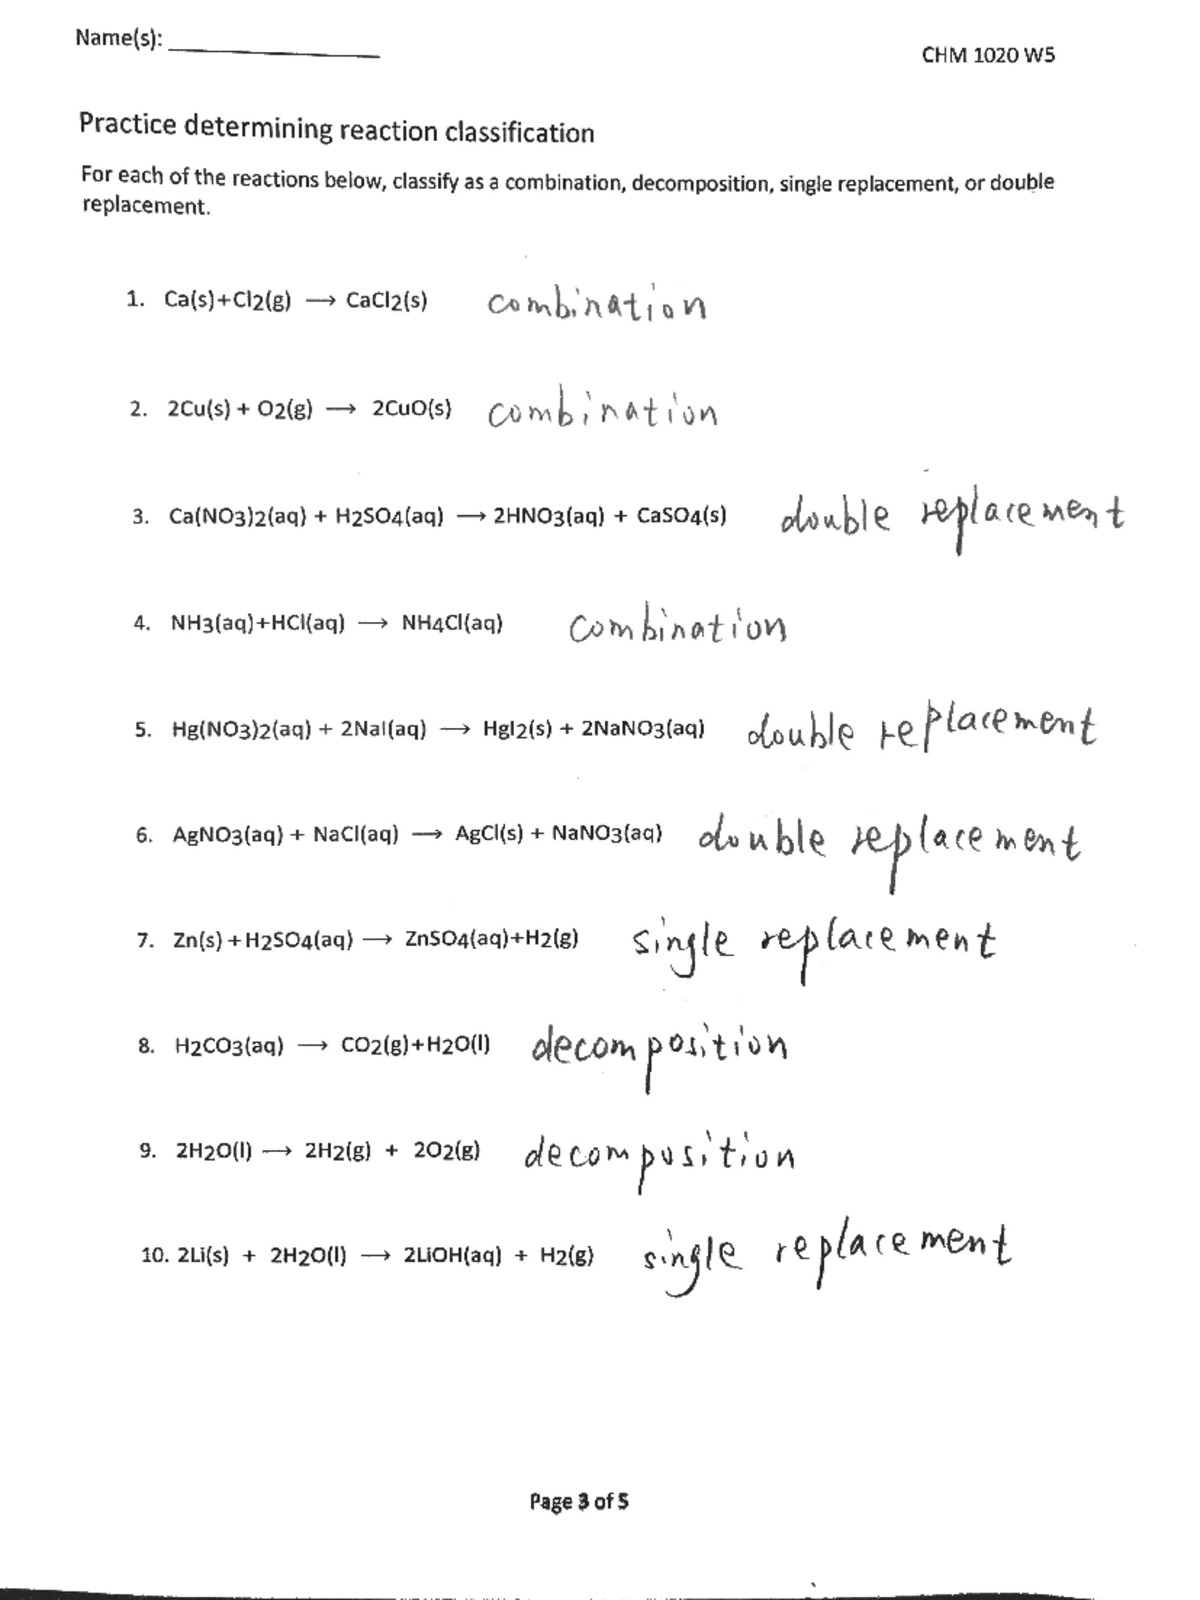 Name(s): ____________
CHM 1020 W5
Practice determining reaction classification
For each of the reactions below, classify as a combination, decomposition, single replacement, or double
replacement.
1. Ca(s)+Cl2(g) ⟶ CaCl2(s) combination
2. 2Cu(s) + O2(g) ⟶ 2CuO(s) combination
3. Ca(NO3)2(aq) + H2SO4(aq) ⟶ 2HNO3(aq) + CaSO4(s) double replacement
4. NH3(aq)+HCl(aq) ⟶ NH4Cl(aq) combination
5. Hg(NO3)2(aq) + 2NaI(aq) ⟶ HgI2(s) + 2NaNO3(aq) double replacement
6. AgNO3(aq) + NaCl(aq) ⟶ AgCl(s) + NaNO3(aq) double replacement
7. Zn(s) + H2SO4(aq) ⟶ ZnSO4(aq)+H2(g) single replacement
8. H2CO3(aq) ⟶ CO2(g)+H2O(l) decomposition
9. 2H2O(l) ⟶ 2H2(g) + 2O2(g) decomposition
10. 2Li(s) + 2H2O(l) ⟶ 2LiOH(aq) + H2(g) single replacement
Page 3 of 5